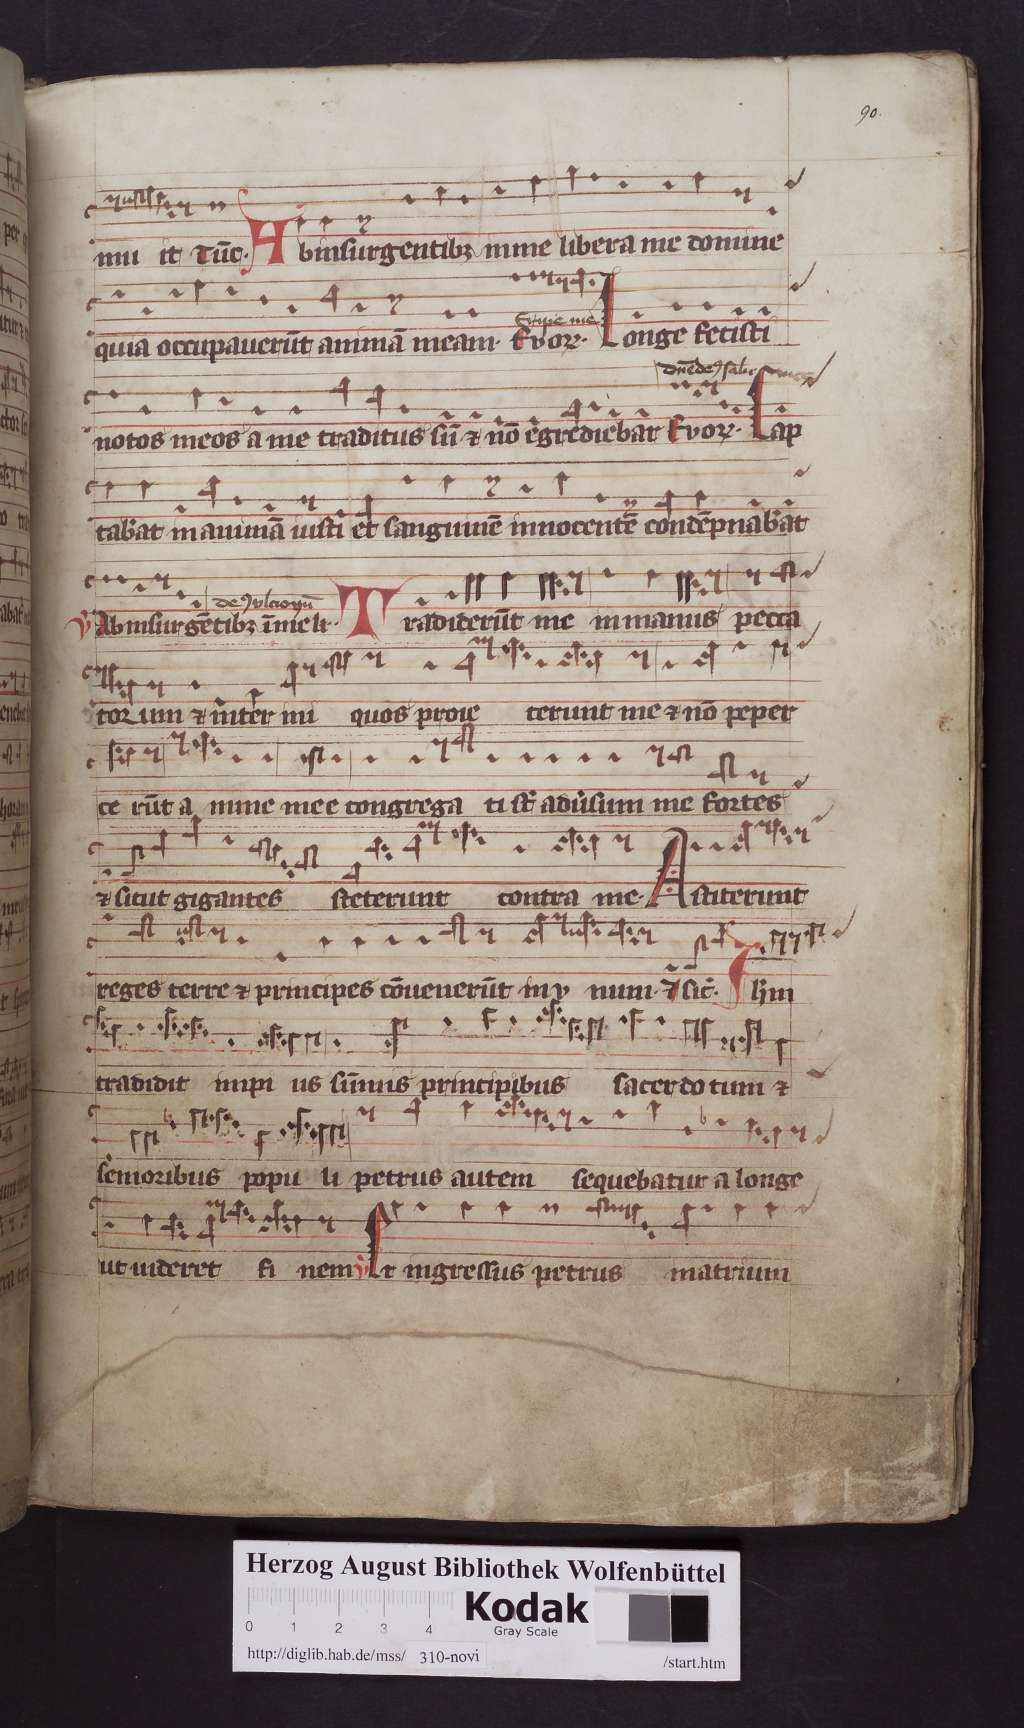 90.
mi it Tūc. Ab insurgentibȝ in me libera me domine
Eripe me
quia occupauerūt animā meam. Evoꝝ. Longe fecisti
notos meos a me traditus sū ⁊ nō egrediebar Evoꝝ. Cap
tabāt in animā iusti et sanguinē innocentē condēpnabāt
℣ Ab insurgētibȝ ī me li. Tradiderūt me in manus pecca
torum ⁊ inter im pi quos proie cerunt me ⁊ nō peper
ce rūt a nime mee congrega ti sūt aduersum me fortes
⁊ sicut gigantes steterunt contra me. Astiterunt
reges terre ⁊ principes cōuenerūt in v num. ⁊ sic. Ihm
tradidit impi us sūmis principibus sacerdotum ⁊
senioribus popu li petrus autem sequebatur a longe
ut uideret fi nem ℣ Et ingressus petrus in atrium
Herzog August Bibliothek Wolfenbüttel
0 1 2 3 4
Kodak
Gray Scale
http://diglib.hab.de/mss/ 310-novi /start.htm